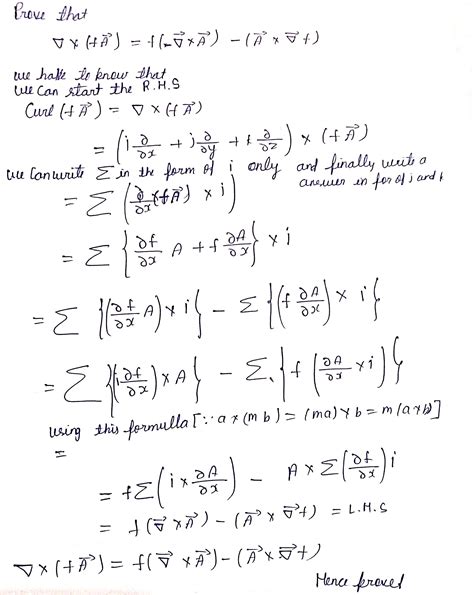 Prove that
∇ × (fA⃗) = f(-∇⃗ × A⃗) - (A⃗ × ∇⃗f)
we have to know that
we can start the R.H.S
Curl (f A⃗) = ∇ × (f A⃗)
= (i ∂/∂x + j ∂/∂y + k ∂/∂z) × (f A⃗)
we can write Σ in the form of i only and finally write a
answer in for of j and k
= Σ (∂/∂x (fA⃗) × i)
= Σ {∂f/∂x A + f ∂A/∂x} × i
= Σ {(∂f/∂x A) × i} - Σ {(f ∂A/∂x) × i}
= Σ {(i ∂f/∂x) × A} - Σ. {f (∂A/∂x × i)}
using this formulla [∵ a × (m b) = (ma) × b = m (a × b)]
=
= f Σ (i × ∂A/∂x) - A × Σ (∂f/∂x) i
= f (∇⃗ × A⃗) - (A⃗ × ∇⃗f) = L.H.S
∇ × (f A⃗) = f(∇⃗ × A⃗) - (A⃗ × ∇⃗f)
Hence proved